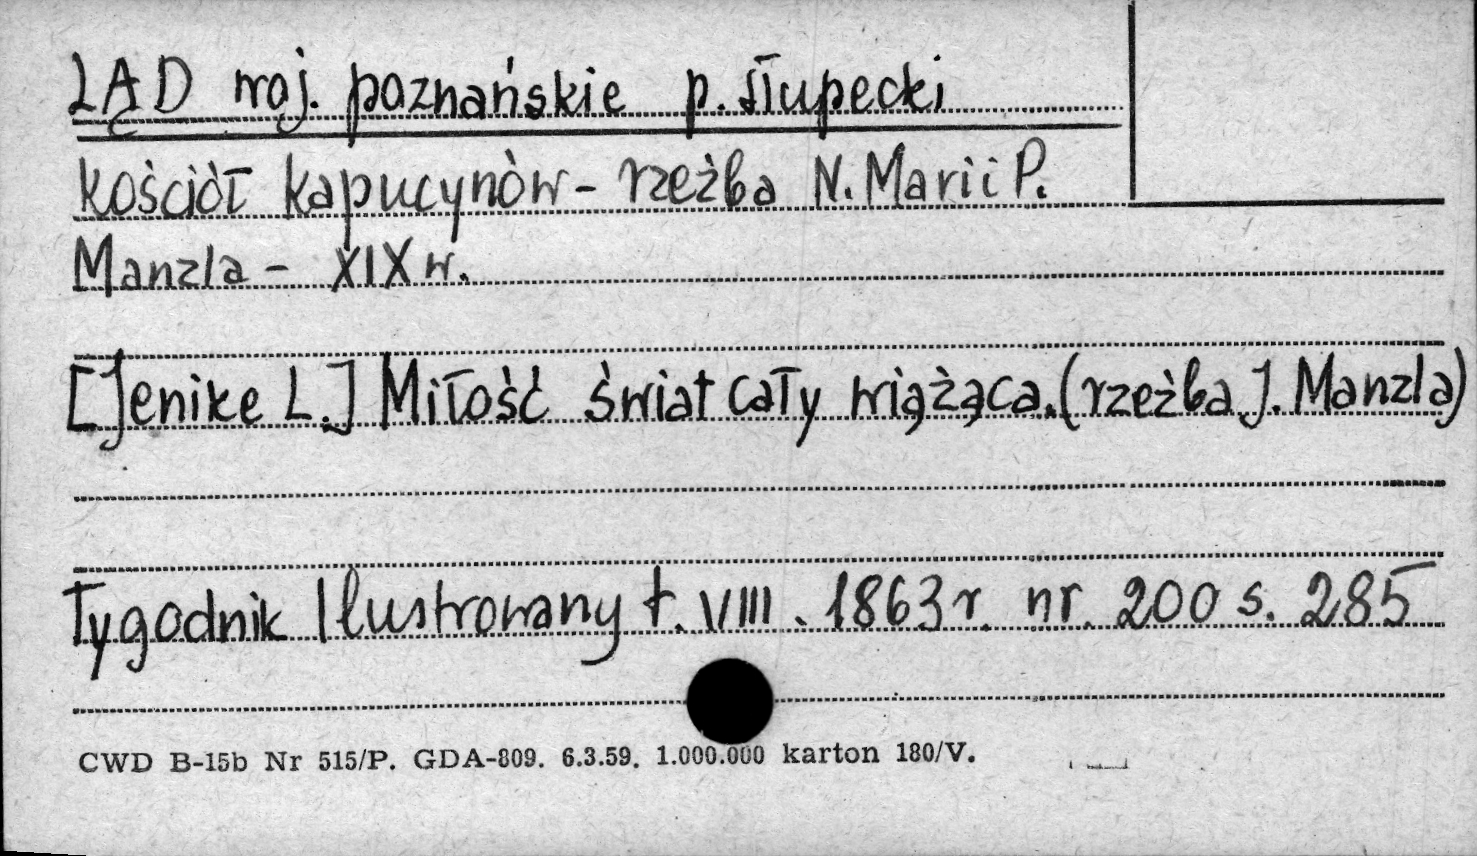 LĄD woj. poznańskie p. słupecki
Kościół kapucynów - rzeźba N. Marii P.
Manzla - XIX w.
[Jenike L.] Miłość świat cały wiążąca. (rzeźba J. Manzla)
Tygodnik Ilustrowany t. VIII. 1863 r. nr. 200 s. 285
CWD B-15b Nr 515/P. GDA-809. 6.3.59. 1.000.000 karton 180/V.